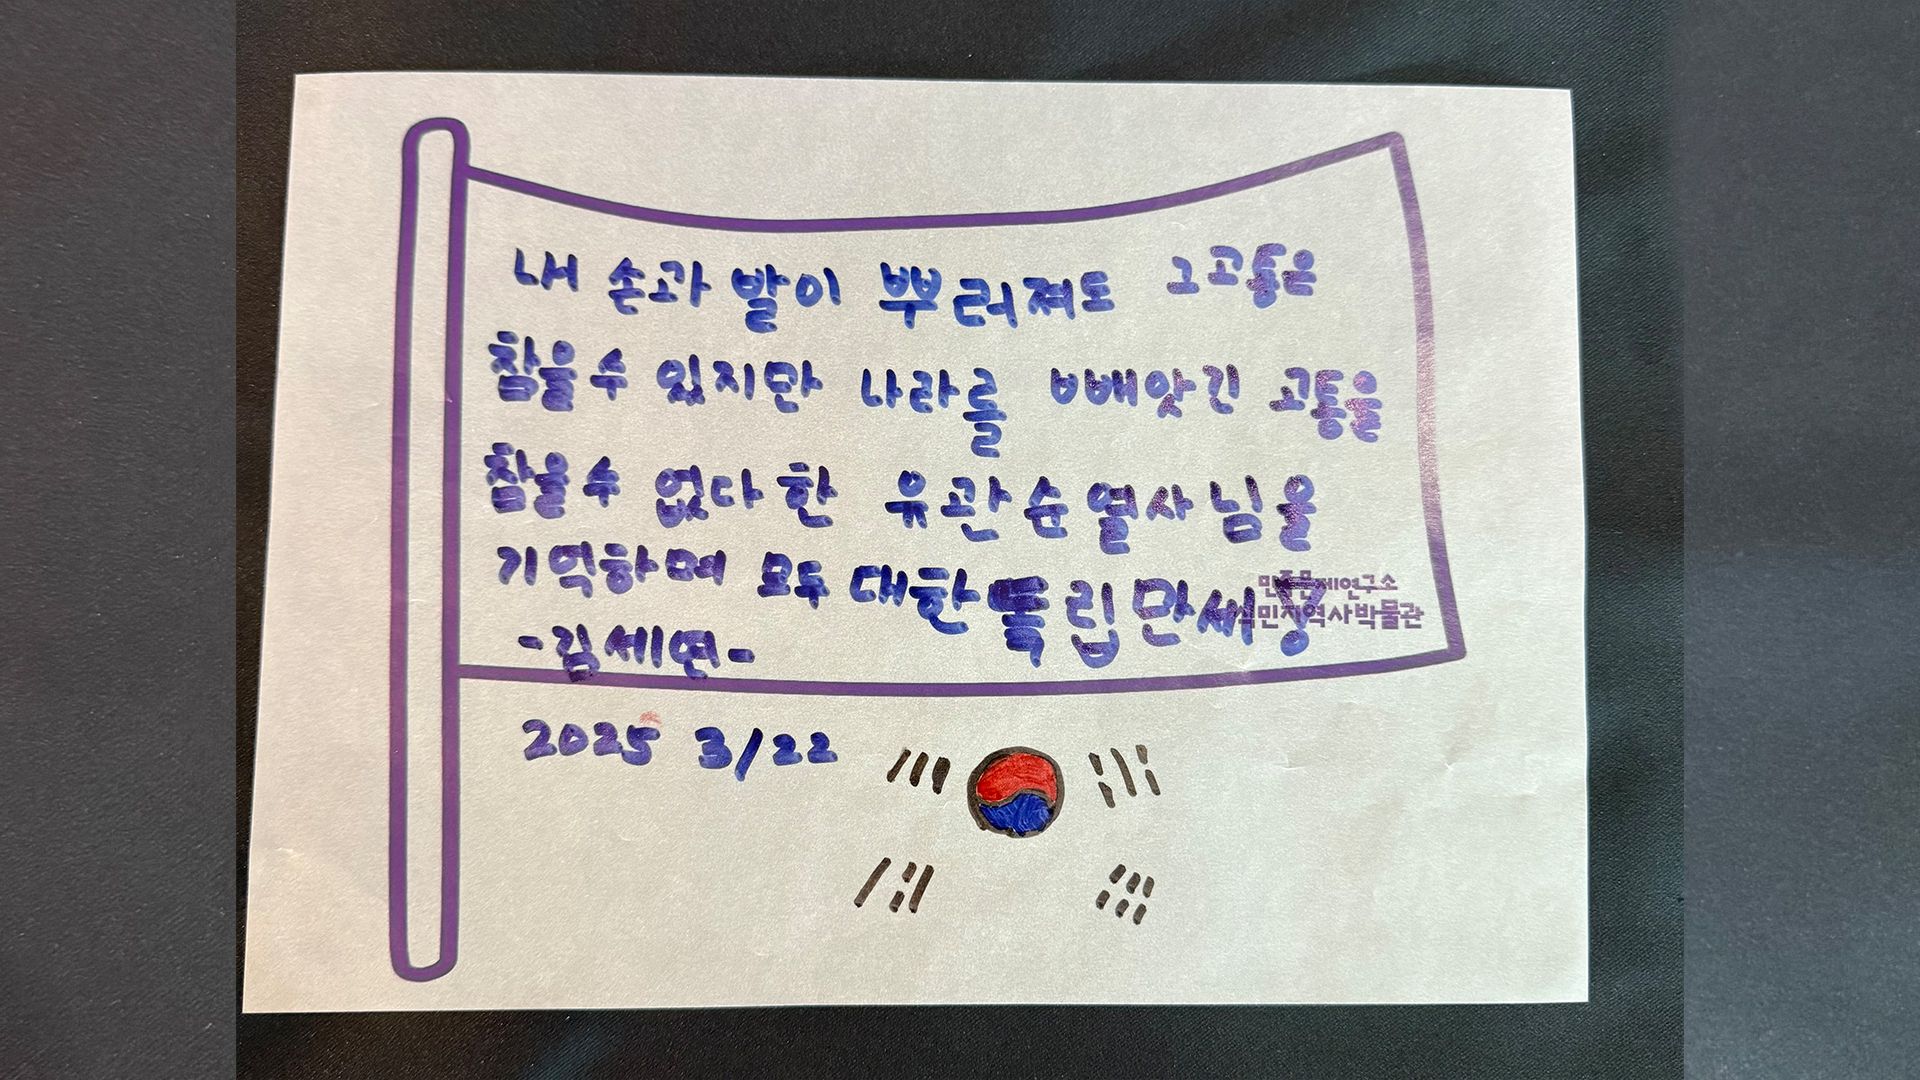 내 손과 발이 뿌러져도 그 고통은
참을 수 있지만 나라를 빼앗긴 고통을
참을 수 없다 한 유관순 열사님을
기억하며 모두 대한 독립 만세
민족문제연구소
식민지역사박물관
-김세연-
2025 3/22